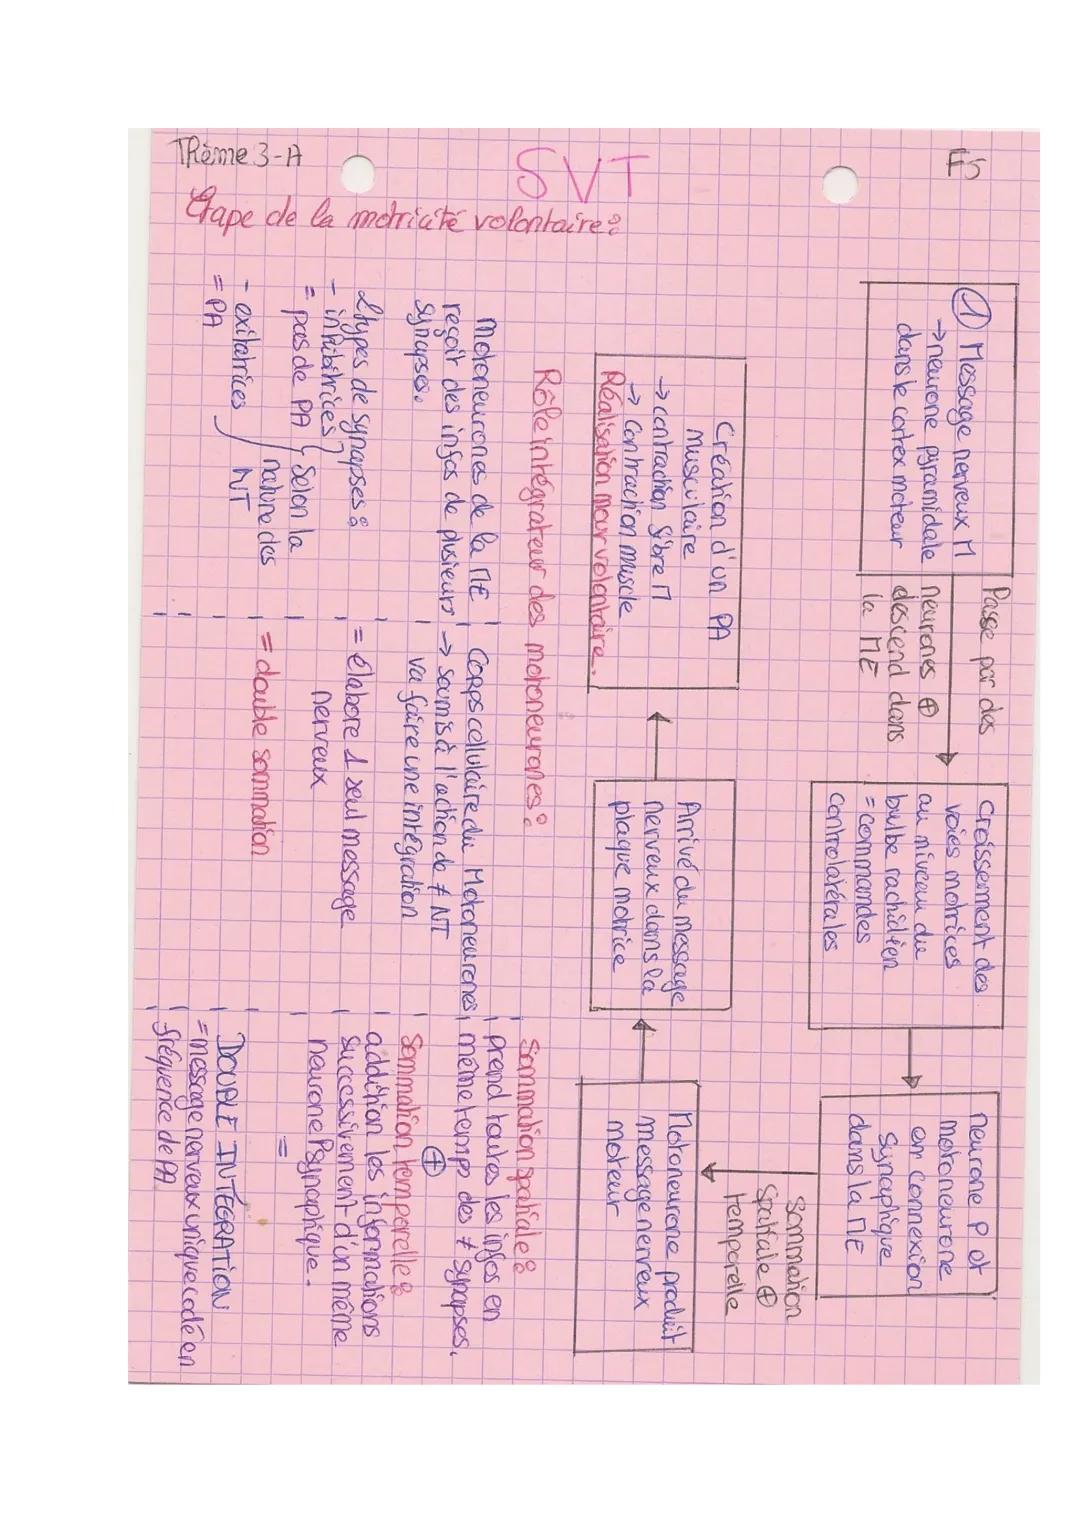 Thème 3-A
SVT
F5
Etape de la motricité volontaire :
① Message nerveux M
→ neurone pyramidale
dans le cortex moteur
Passe par des
neurones ⊕
descend dans
la ME
Croissement des
voies motrices
au niveau du
bulbe rachidien
= commandes
controlatérales
neurone P et
motoneurone
en connexion
synaphique
dans la ME
Sommation
spatiale ⊕
temporelle
Motoneurone produit
message nerveux
moteur
Arrivé du message
nerveux dans la
plaque motrice
Création d'un PA
Musculaire
→ contraction fibre M
→ Contraction muscle
Réalisation mouv volontaire.
Rôle intégrateur des motoneurones :
Motoneurones de la ME
reçoit des infos de plusieurs
synapses.
2 types de synapses :
- inhibitrices
= pas de PA
- exitatrices
= PA
Selon la
nature des
NT
Corps cellulaire du Motoneurones
→ soumis à l'action de ≠ NT
va faire une intégration
= élabore 1 seul message
nerveux
= double sommation
Sommation spatiale :
prend toutes les infos en
même temp des ≠ synapses.
⊕
Sommation temporelle :
addition les informations
successivement d'un même
neurone Psynaphique.
=
DOUBLE INTÉGRATION
= message nerveux unique codé en
fréquence de PA